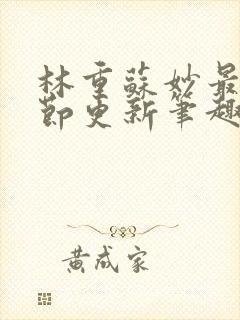 林重蘇妙最
節更新筆趣
黄成家